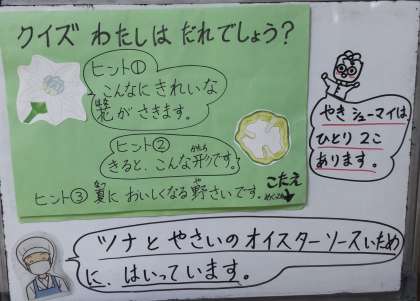 クイズ わたしは だれでしょう?
ヒント①
こんなに きれいな
花が さきます。
ヒント②
きると、こんな形です。
かたち
ヒント③ 夏に おいしくなる 野さいです。
なつ
や
こたえ
めくってね
やきシューマイは
ひとり 2こ
あります。
ツナと やさいの オイスターソースいため
に、はいっています。